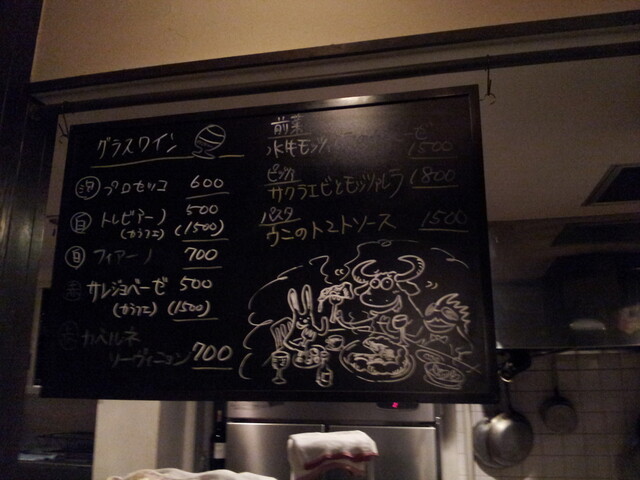 グラスワイン
泡 プロセッコ 600
白 トレビアーノ 500
(カラフェ) (1500)
白 フィアーノ 700
赤 サレジョベーゼ 500
(カラフェ) (1500)
赤 カベルネ
ソーヴィニョン 700
前菜
水牛モッツァ ーゼ 1500
ピッツァ
サクラエビとモッツァレラ 1800
パスタ
ウニのトマトソース 1500